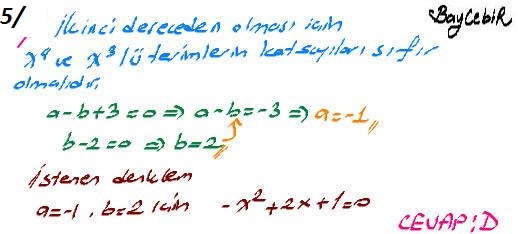 5/ İkinci dereceden olması için
BayCebiR
x⁴ ve x³ lü terimlerin katsayıları sıfır
olmalıdır.
a-b+3=0 ⇒ a-b=-3 ⇒ a=-1
b-2=0 ⇒ b=2
İstenen denklem
a=-1, b=2 için -x²+2x+1=0
CEVAP:D